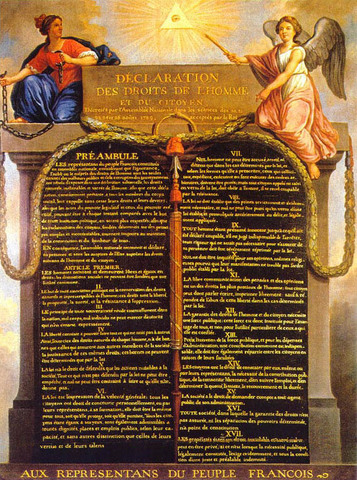 DÉCLARATION
DES DROITS DE L'HOMME
ET DU CITOYEN,
Décrétés par l'Assemblée Nationale dans les séances des 20, 21
août 1789, acceptés par le Roi
PRÉAMBULE
LES représentans du peuple François, constitués
en assemblée nationale, considérant que l'ignorance,
l'oubli ou le mépris des droits de l'homme sont les seules
causes des malheurs publics et de la corruption des gouvernemens
ont résolu d'exposer dans une déclaration solemnelle, les droits
naturels, inaliénables et sacrés de l'homme; afin que cette décla-
ration, constamment présente à tous les membres du corps
social, leur rappelle sans cesse leurs droits et leurs devoirs;
afin que les actes du pouvoir législatif et ceux du pouvoir exé-
cutif, pouvant être à chaque instant comparés avec le but
de toute institution politique, en soient plus respectés; afin que
les réclamations des citoyens, fondées désormais sur des prin-
cipes simples et incontestables, tournent toujours au maintien
de la constitution et du bonheur de tous.
EN conséquence, l'assemblée nationale reconnoît et déclare,
en présence et sous les auspices de l'Être suprême, les droits
suivans de l'homme et du citoyen.
ARTICLE PREMIER.
LES hommes naissent et demeurent libres et égaux en
droits; les distinctions sociales ne peuvent être fondées que sur
l'utilité commune.
II.
LE but de toute association politique est la conservation des droits
naturels et imprescriptibles de l'homme; ces droits sont la liberté,
la propriété, la sureté, et la résistance à l'oppression.
III.
LE principe de toute souveraineté réside essentiellement dans
la nation, nul corps, nul individu ne peut exercer d'autorité
qui n'en émane expressément.
IV.
LA liberté consiste à pouvoir faire tout ce qui ne nuit pas à autrui.
Ainsi, l'exercice des droits naturels de chaque homme, n'a de bor-
nes que celles qui assurent aux autres membres de la société
la jouissance de ces mêmes droits; ces bornes ne peuvent
être déterminées que par la loi.
V.
LA loi n'a le droit de défendre que les actions nuisibles à la
société. Tout ce qui n'est pas défendu par la loi ne peut être
empêché, et nul ne peut être contraint à faire ce qu'elle n'or-
donne pas.
VI.
LA loi est l'expression de la volonté générale; tous les
citoyens ont droit de concourir personnellement, ou par
leurs représentans, à sa formation; elle doit être la même
pour tous, soit qu'elle protège, soit qu'elle punisse. Tous les
citoyens étant égaux à ses yeux, sont également admissibles à
toutes dignités, places et emplois publics, selon leur ca-
pacité, et sans autres distinction que celles de leurs
vertus et de leurs talens.
VII.
NUL homme ne peut être accusé, arrêté, ni
détenu que dans les cas déterminés par la loi, et
selon les formes qu'elle a prescrites,
VIII.
LA loi ne doit établir que des peines strictement et évidem-
ment nécessaires, et nul ne peut être puni qu'en vertu d'une
loi établie et promulguée antérieurement au délit, et légale-
ment appliquée.
IX.
TOUT homme étant présumé innocent jusqu'à ce qu'il ait
été déclaré coupable, s'il est jugé indispensable de l'arrêter,
toute rigueur qui ne seroit pas nécessaire pour s'assurer de
sa personne doit être sévèrement réprimée par la loi.
X.
NUL ne doit être inquiété pour ses opinions, mêmes religi-
euses pourvu que leur manifestation ne trouble pas l'ordre
public établi par la loi.
XI.
LA libre communication des pensées et des opinions
est un des droits les plus précieux de l'homme; tout citoyen
peut donc parler, écrire, imprimer librement, sauf à ré-
pondre de l'abus de cette liberté dans les cas déterminés
par la loi.
XII.
LA garantie des droits de l'homme et du citoyen nécessite
une force publique; cette force est donc instituée pour l'avan-
tage de tous, et non pour l'utilité particulière de ceux à qui
elle est confiée.
XIII.
POUR l'entretien de la force publique, et pour les dépenses
d'administration, une contribution commune est indispen-
sable; elle doit être également répartie entre les citoyens en
raison de leurs facultés.
XIV.
LES citoyens ont le droit de constater par eux-mêmes ou
par leurs représentans, la nécessité de la contribution pub-
lique, de la consentir librement, d'en suivre l'emploi, et d'en
déterminer la quotité, l'assiette, le recouvrement et la durée.
XV.
LA société a le droit de demander compte à tout agent
public de son administration.
XVI.
TOUTE société, dans laquelle la garantie des droits n'est
pas assurée, ni la séparation des pouvoirs déterminée,
n'a point de constitution.
XVII.
LES propriétés étant un droit inviolable et sacré, nul ne
peut en être privé, si ce n'est lorsque la nécessité publique,
légalement constatée, l'exige évidemment, et sous la condi-
tion d'une juste et préalable indemnité.
AUX REPRESENTANS DU PEUPLE FRANCOIS